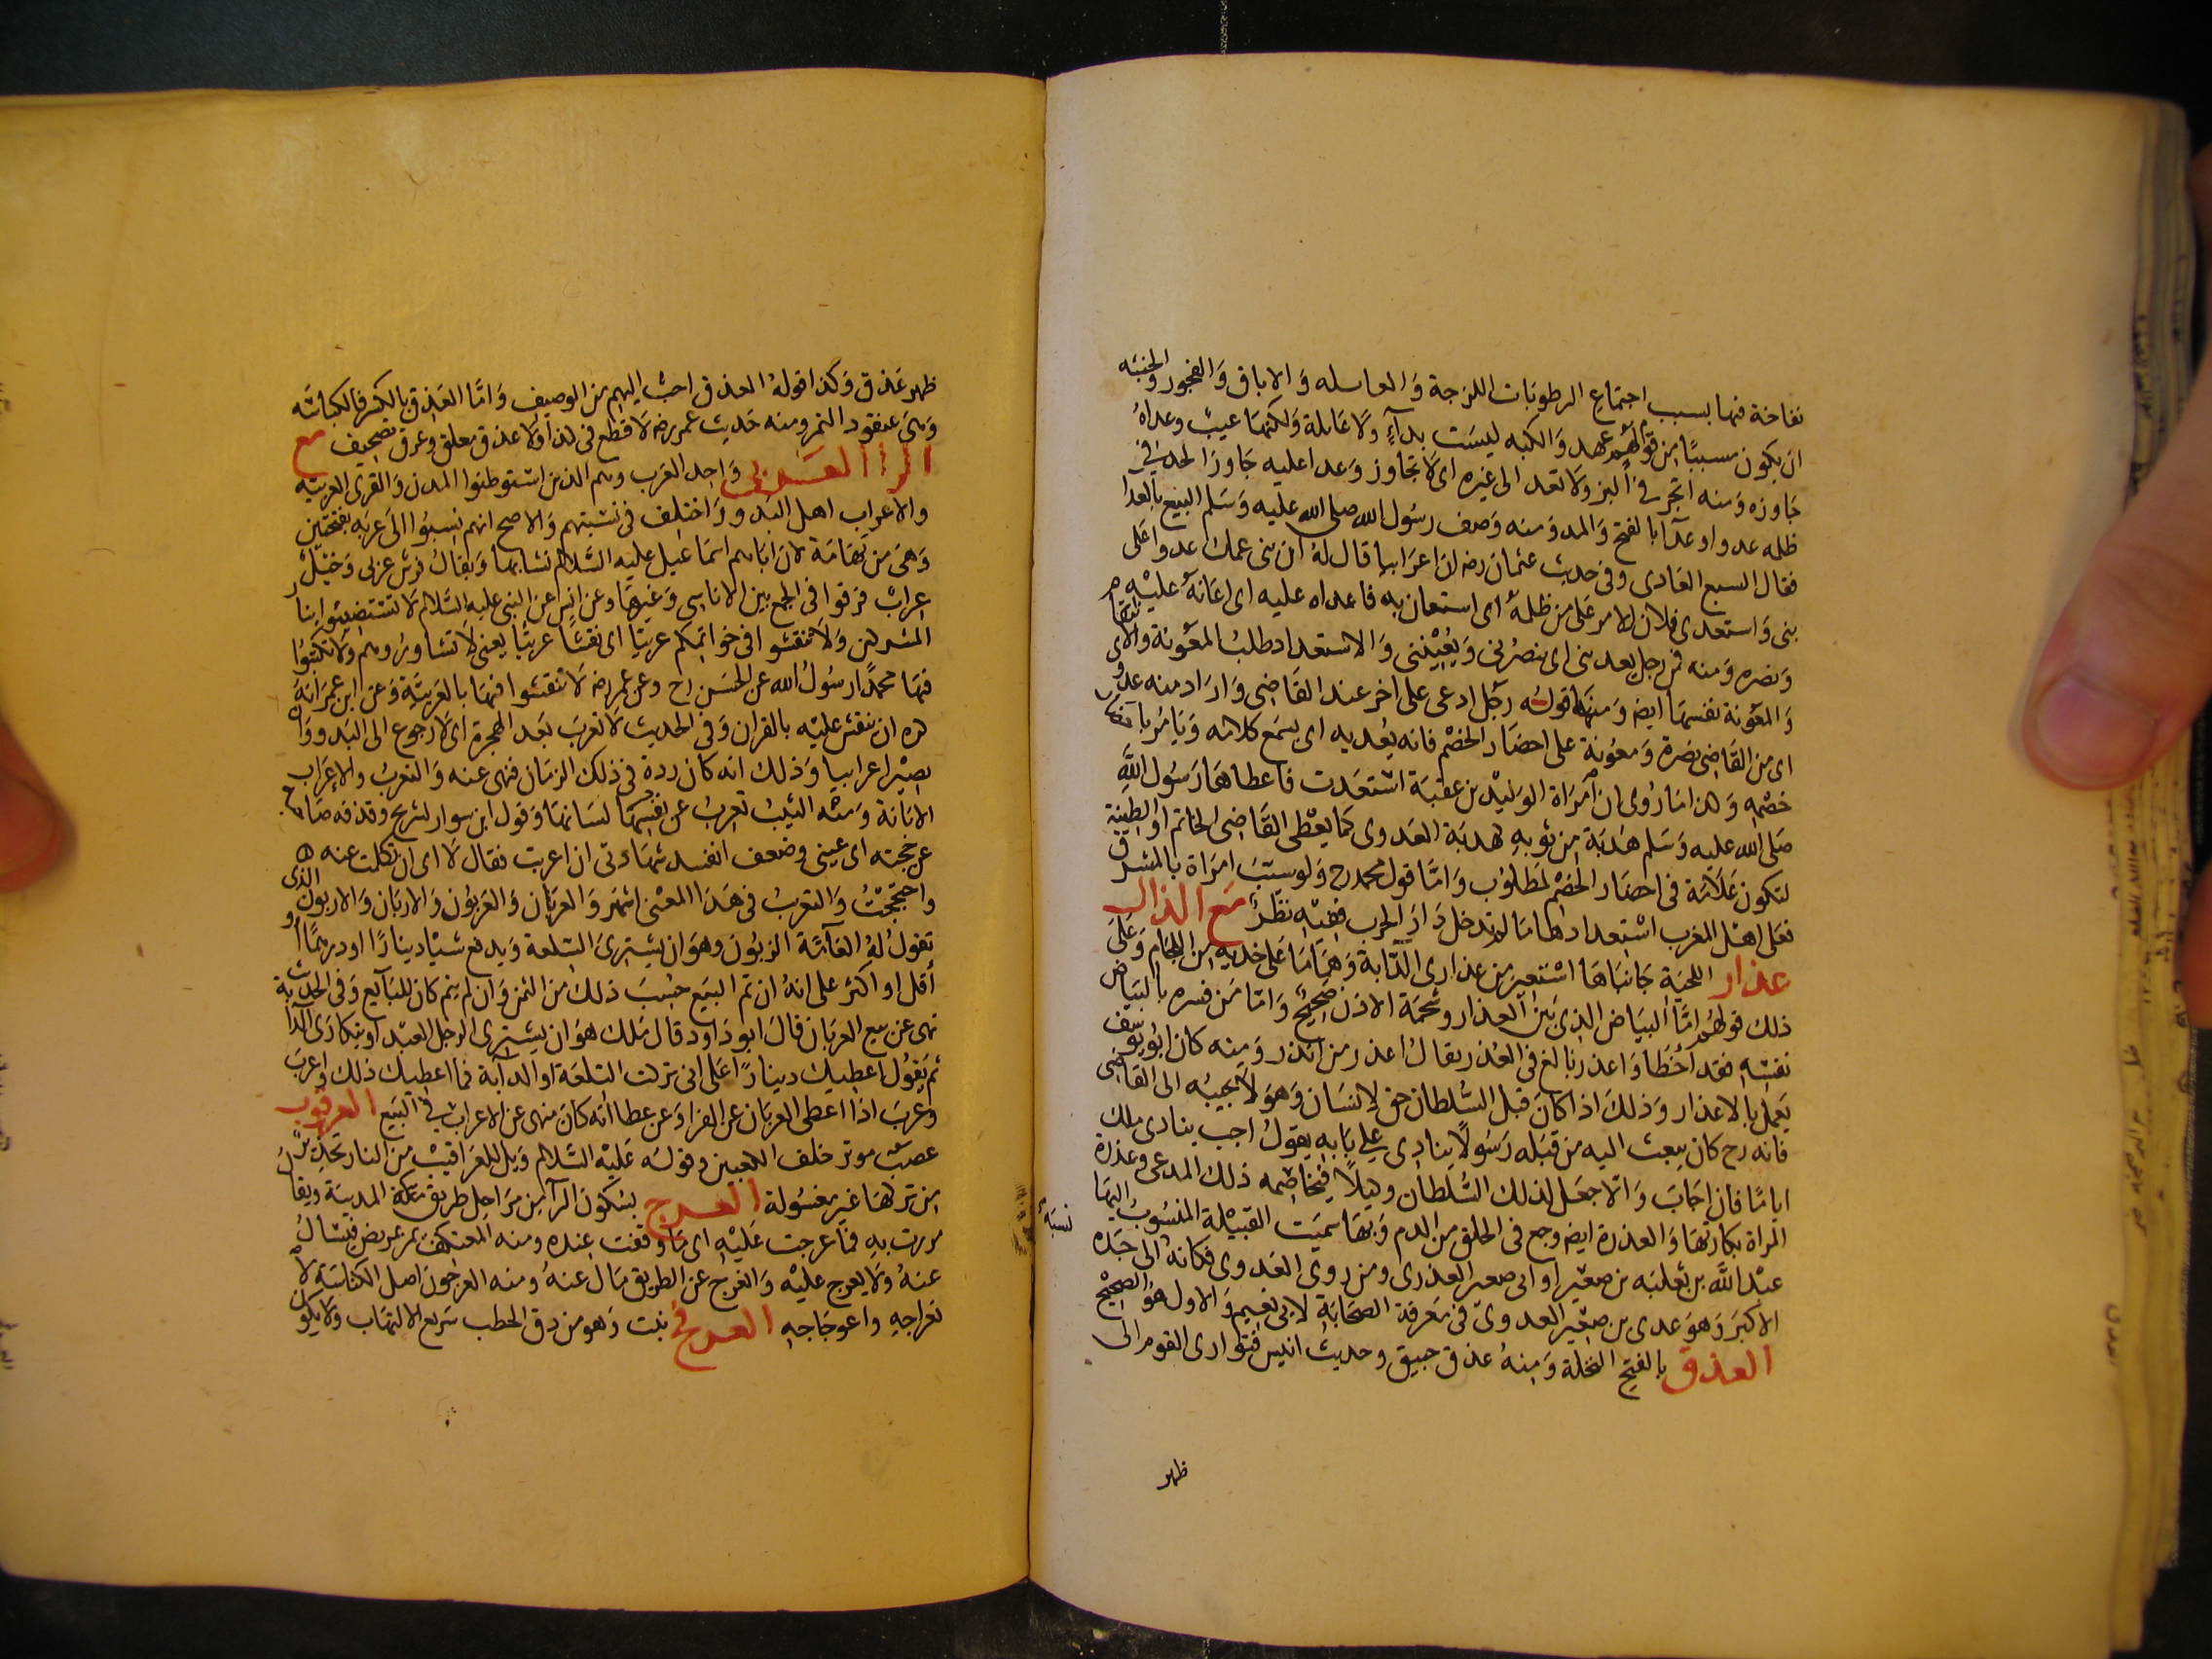 نفاخة فيها بسبب اجتماع الرطوبات اللزجة والعاسله والاباق والفجور والخبثه
ان يكون مسببا من قولهم عهد والكبه ليست بداء ولا غايلة ولكنها عيب وعداه
جاوزه ومنه اتجر في البز ولا تعد الى غيره اى لا تجاوز وعدا عليه جاوز الحد في
ظلمه عدوا وعداء بالفتح والمد ومنه وصف رسول الله صلى الله عليه وسلم البيع بالعدا
فقال السبع العادى وفى حديث عثمان رضه ان اعرابيا قال له ان بنى عمك عدوا على
بنى واستعدى فلان الامير على من ظلمه اى استعان به فاعداه عليه اى اعانه عليه
ونصره ومنه فمن رجل يعدينى اى ينصرنى ويعيننى والاستعدا طلب المعونة والانتقام
والمعونة نفسها ايضا ومنها قوله رجل ادعى على اخر عند القاضى واراد منه عدوى
اى من القاضى نصرة ومعونة على احضار الخصم فانه يعديه اى يسمع كلامه ويامر باحضار
خصمه وهذا ما روى ان امراة الوليد بن عقبة استعدت فاعطاها رسول الله
صلى الله عليه وسلم هدبة من ثوبه كهدبة العدوى كما يعطى القاضى الخاتم او الطينة
لتكون علامة فى احضار الخصم المطلوب واما قول محمد رح ولو سبيت امراة بالمشرق
فعلى اهل المغرب استعدادها ما لم تدخل دار الحرب ففيه نظر مع الذال
عذار اللحية جانباها استعير من عذارى الدابة وهما ما على خديه من اللجام وعلى
ذلك قولهم اما البياض الذى بين العذار وشحمة الاذن صحيح واما من فسره بالبياض
نفسه فقد اخطا واعذر بالغ فى العذر يقال اعذر من انذر ومنه كان ابو يوسف
يعمل بالاعذار وذلك اذا كان قبل السلطان حق لانسان وهو لا يجيبه الى القاضى
فانه رح كان يبعث اليه من قبله رسولا ينادى على بابه يقول اجب ينادى بذلك
اياما فان اجاب والا جعل لذلك السلطان وكيلا فيخاصمه ذلك المدعى وعذرة
المراة بكارتها والعذرة ايضا وجع فى الحلق من الدم وبها سميت القبيلة المنسوب اليها
عبد الله بن ثعلبه بن صعير او ابى صعير العذرى ومن روى العدوى فكانه نسبه الى جده
الاكبر وهو عدى بن صعير العدوى فى معرفة الصحابة لابى نعيم والاول هو الصحيح
العذق بالفتح النخلة ومنه عذق حبيق وحديث انيس فتوارى القوم الى
ظهر
ظهر عذق وكذا قوله العذق احب اليهم من الوصيف واما العذق بالكسر فالكباسه
وهى عنقود التمر ومنه حديث عمر رضه لا قطع فى كذا ولا عذق معلق وعرق تصحيف مع
الراء العربى واحد العرب وهم الذين استوطنوا المدن والقرى العربيه
والاعراب اهل البدو واختلف فى نسبتهم والاصح انهم نسبوا الى عربه بفتحتين
وهى من تهامة لان اباهم اسماعيل عليه السلام نشا بها ويقال فرس عربى وخيل
عراب فرقوا فى الجمع بين الاناسى وغيرها وعن انس عن النبى عليه السلام لا تستضيئوا بنار
المشركين ولا تنقشوا فى خواتمكم عربيا اى نقشا عربيا يعنى لا تشاوروهم ولا تكتبوا
فيها محمد رسول الله عن الحسن رح وعن عمر رضه لا تنقشوا فيها بالعربية وعن ابن عمر انه
كره ان ينقش عليه بالقران وفى الحديث لا تعرب بعد الهجرة اى لا رجوع الى البدو وان
يصير اعرابيا وذلك انه كان ردة فى ذلك الزمان فنهى عنه والتعرب والاعراب
الابانة ومنه الثيب تعرب عن نفسها لسانها وقول ابن سوار لشريح وقذفه صاحبه
عن حجته اى عيى وضعف اتفسد شهادتى ان اعربت فقال لا اى ان تكلمت عنه
واحتججت والتعرب فى هذا المعنى اشهر والعربان والعربون والاربان والاربون الذى
تقول له العامة الربون وهو ان يشترى السلعة ويدفع شيا دينارا او درهما او
اقل او اكثر على انه ان تم البيع حسب ذلك من الثمن وان لم يتم كان للبايع وفى الحديث
نهى عن بيع العربان قال ابو داود قال ملك هو ان يشترى الرجل العبد او يتكارى الدابة
ثم يقول اعطيك دينارا على انى تركت السلعة او الدابة فما اعطيك ذلك واعرب
وعرب اذا اعطى العربان عن الفراء وعن عطا انه كان منهى عن الاعراب فى البيع العرقوب
عصب موتر خلف الكعبين وقوله عليه السلام ويل للعراقيب من النار تحذير
من تركها غير مغسولة العرج بسكون الرا من مراحل طريق مكة المدينة ويقال
مررت به فما عرجت عليه اى ما وقفت عنده ومنه المعتكف يمر بمريض فيسال
عنه ولا يعرج عليه وانعرج عن الطريق مال عنه ومنه العرجون اصل الكباسه لا
نعراجه واعوجاجه العرفج نبت وهو من دق الحطب سريع الالتهاب ولا يكون